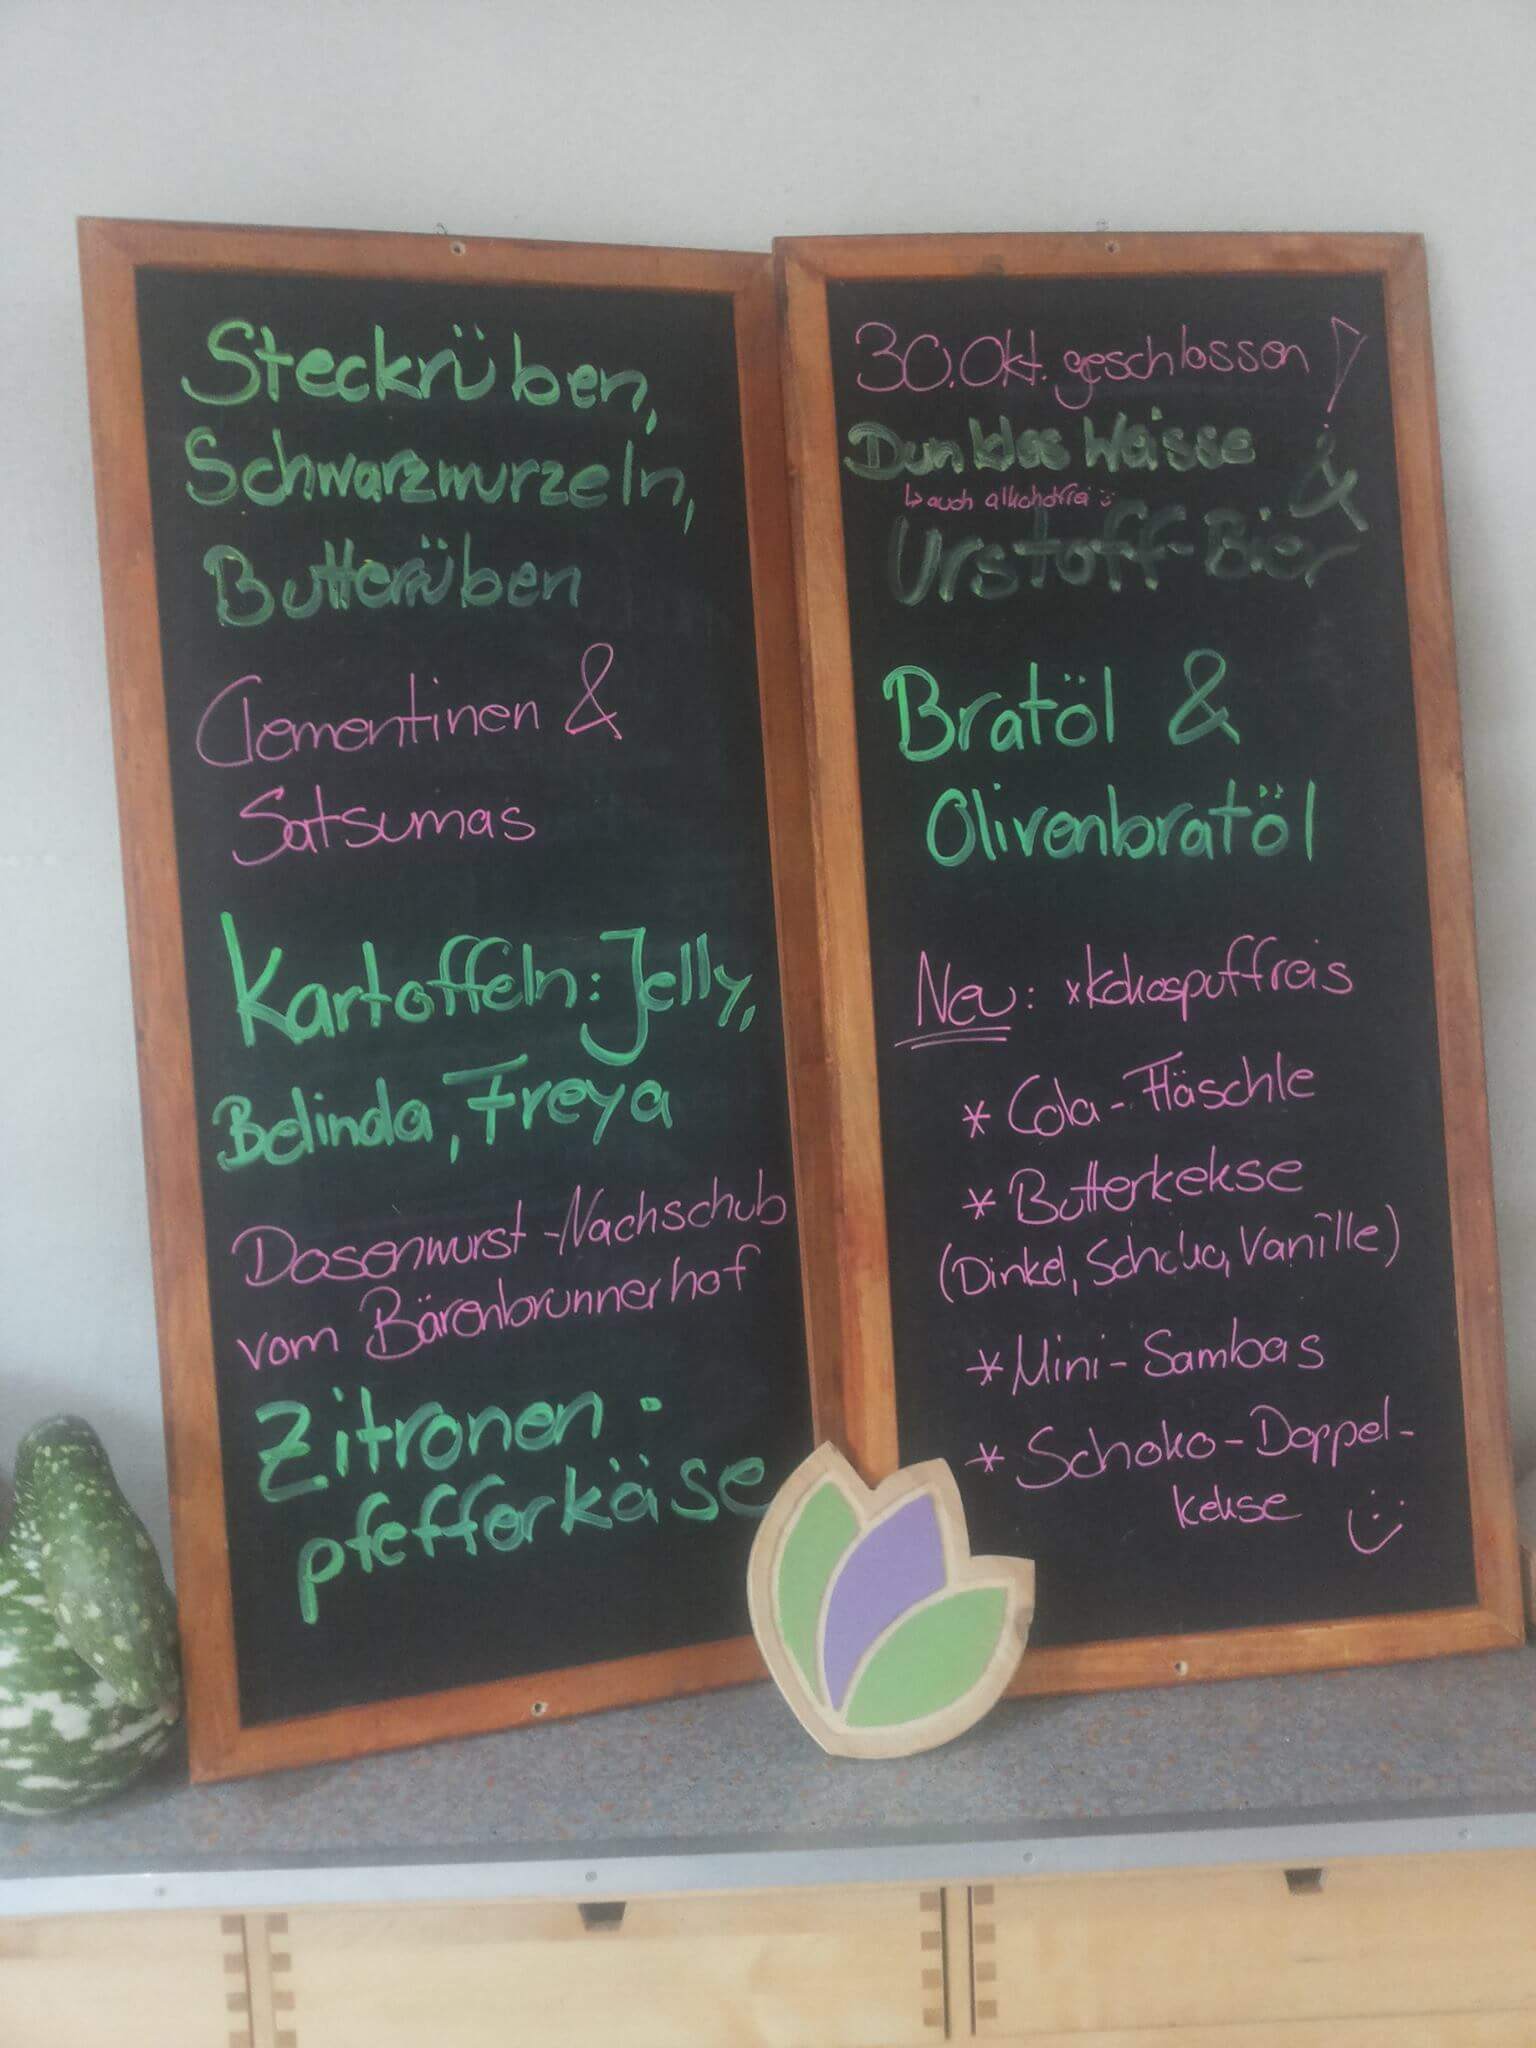 Steckrüben,
Schwarzwurzeln,
Butterrüben
Clementinen &
Satsumas
Kartoffeln: Jelly,
Belinda, Freya
Dosenwurst-Nachschub
vom Bärenbrunnerhof
Zitronen-
pfefferkäse
30. Okt. geschlossen!
Dunkles Weisse &
↳ auch alkoholfrei :)
Urstoff-Bier
Bratöl &
Olivenbratöl
Neu: *Kokospuffreis
* Cola-Fläschle
* Butterkekse
(Dinkel, Schoko, Vanille)
* Mini-Sambas
* Schoko-Doppel-
kekse :)